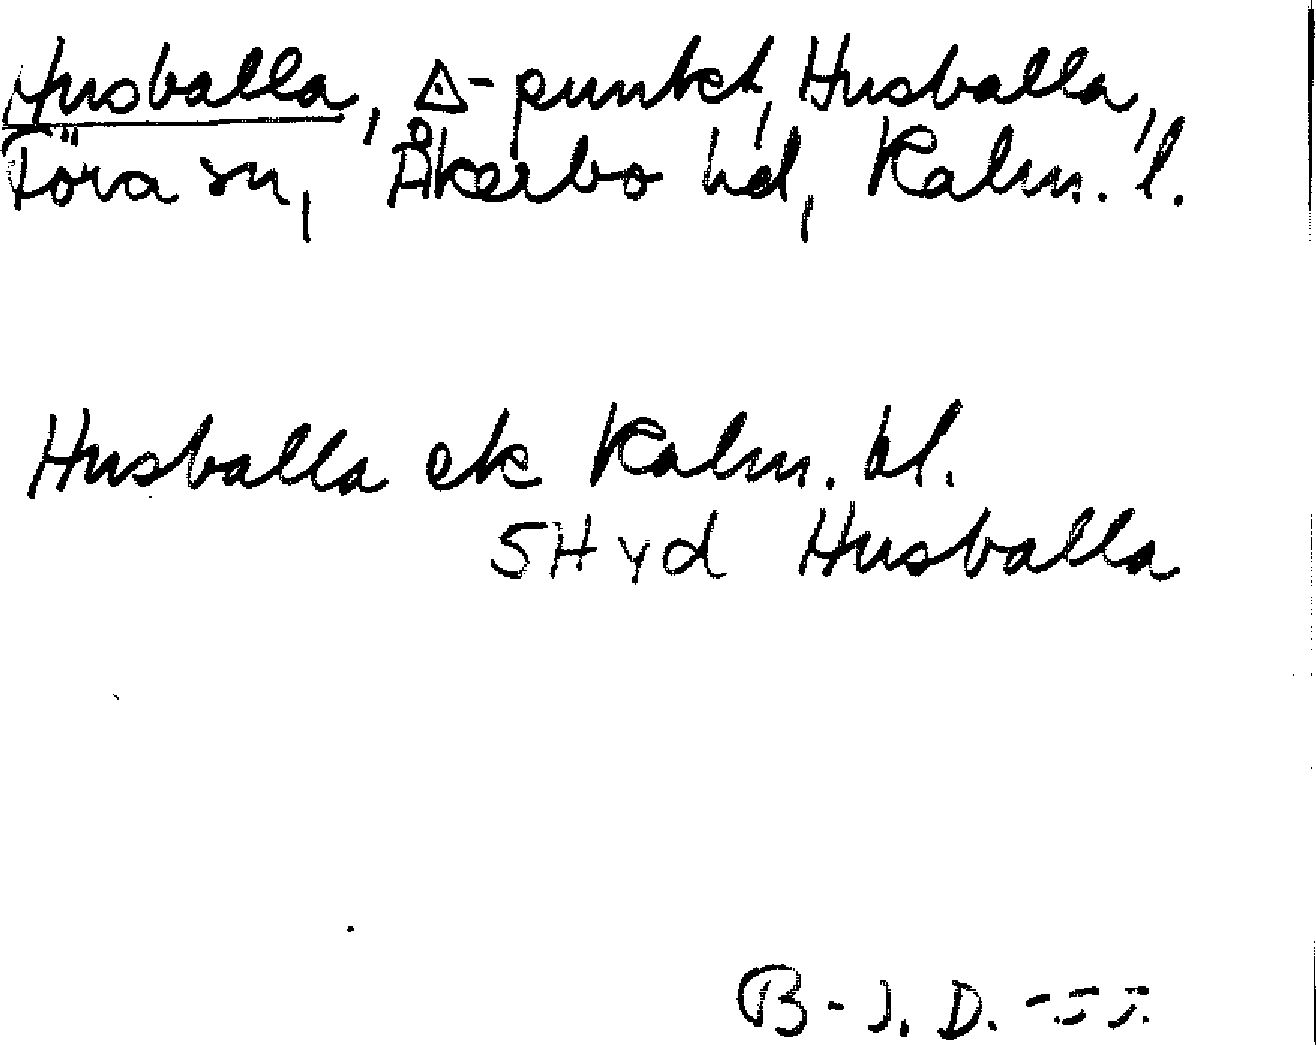 Husvalla, △-punkt, Husvalla,
Föra sn, Åkerbo hd, Kalm. l.
Husvalla ek Kalm. bl.
5H yd Husvalla
B-J. D. -55.